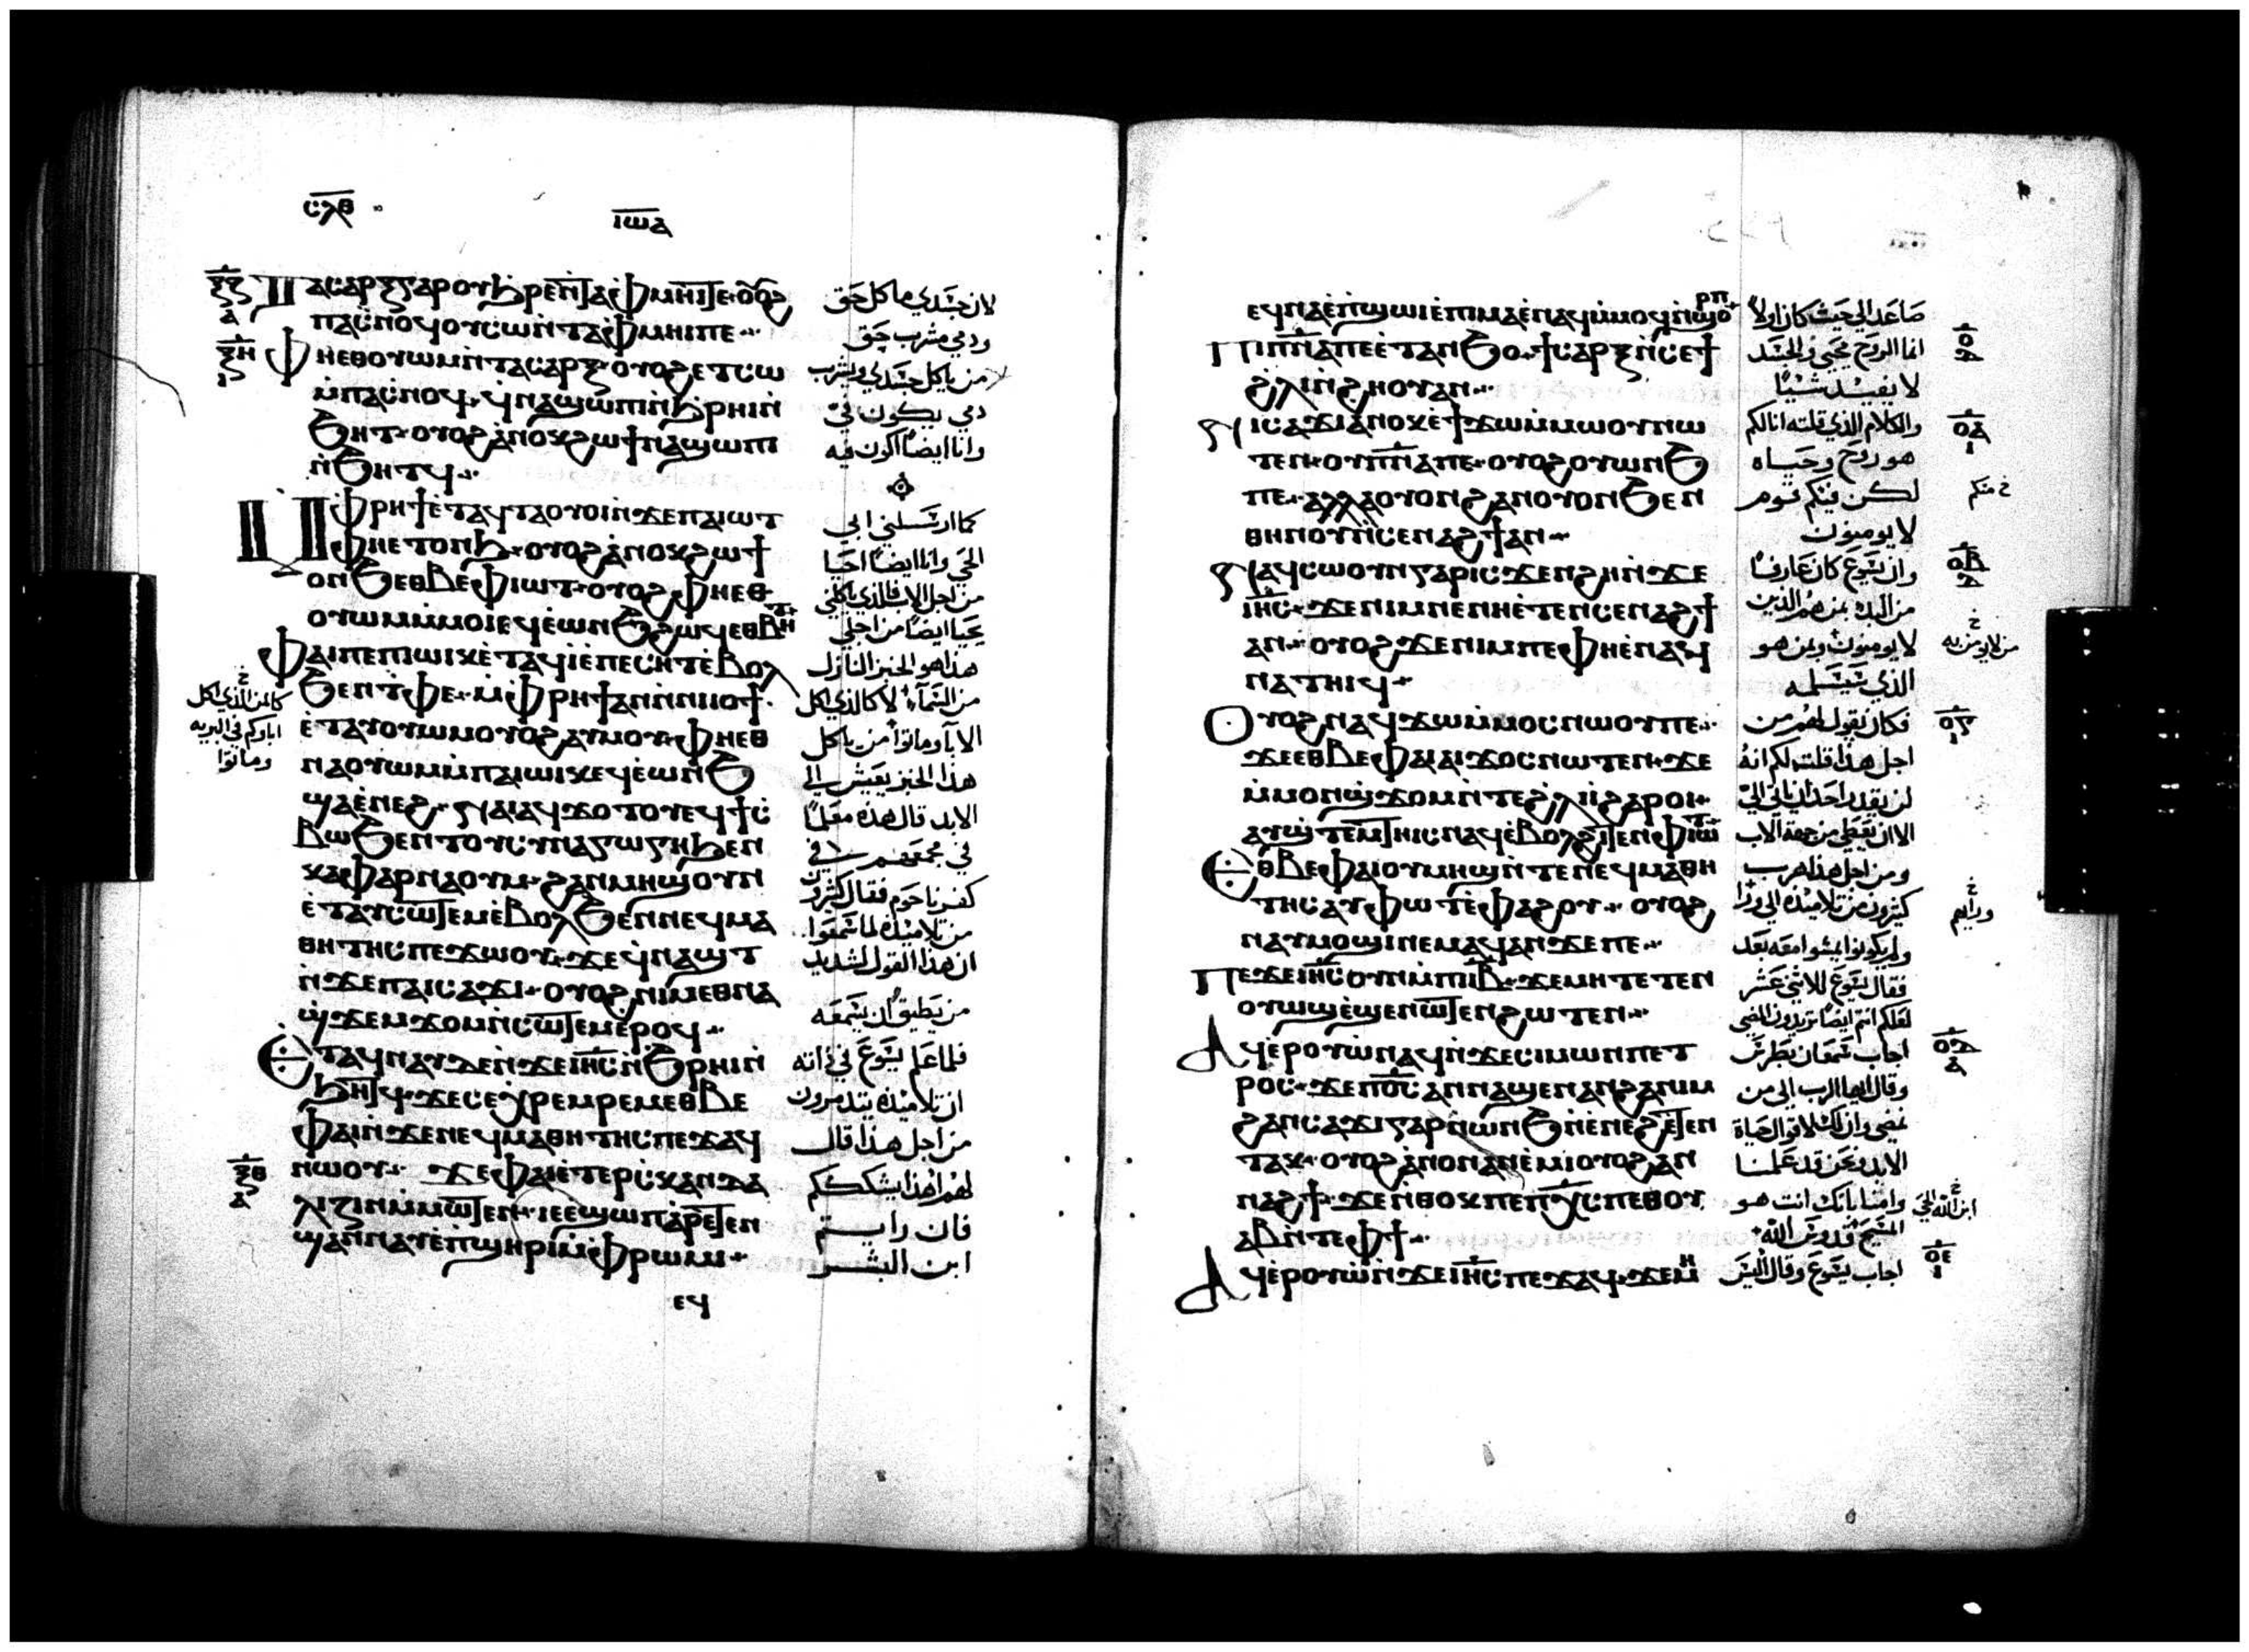 ⲥⲗⲃ
ⲓⲱⲁ
ⲝⲍ
ⲁ
ⲡⲁⲥⲁⲣⲝ ⲅⲁⲣ ⲟⲩϧⲣⲉ ⲛⲧⲁⲫⲙⲏⲓ ⲧⲉ ⲟⲩⲟϩ
ⲡⲁⲥⲛⲟϥ ⲟⲩⲥⲱ ⲛⲧⲁⲫⲙⲏⲓ ⲡⲉ
ⲝⲏ
ⲓ
ⲫⲏⲉⲑⲟⲩⲱⲙ ⲛⲧⲁⲥⲁⲣⲝ ⲟⲩⲟϩ ⲉⲧⲥⲱ
ⲙⲡⲁⲥⲛⲟϥ ϥⲛⲁϣⲱⲡⲓ ⲛϧⲣⲏⲓ ⲛ
ϧⲏⲧ ⲟⲩⲟϩ ⲁⲛⲟⲕ ϩⲱ ϯⲛⲁϣⲱⲡⲓ
ⲛϧⲏⲧϥ
ⲙⲫⲣⲏϯ ⲉⲧⲁϥⲧⲁⲟⲩⲟⲓ ⲛϫⲉ ⲡⲁⲓⲱⲧ
ⲫⲏⲉⲧⲟⲛϧ ⲟⲩⲟϩ ⲁⲛⲟⲕ ϩⲱ ϯ
ⲟⲛϧ ⲉⲑⲃⲉ ⲫⲓⲱⲧ ⲟⲩⲟϩ ⲫⲏⲉⲑ
ⲟⲩⲱⲙ ⲙⲙⲟⲓ ⲉϥⲉⲱⲛϧ ϩⲱϥ ⲉⲑⲃⲏⲧ
ⲫⲁⲓ ⲡⲉ ⲡⲓⲱⲓⲕ ⲉⲧⲁϥⲓ ⲉⲡⲉⲥⲏⲧ ⲉⲃⲟⲗ
ϧⲉⲛ ⲧⲫⲉ ⲙⲫⲣⲏϯ ⲁⲛ ⲛⲛⲓⲓⲟϯ
ⲉⲧⲁⲩⲟⲩⲱⲙ ⲟⲩⲟϩ ⲁⲩⲙⲟⲩ ⲫⲏⲉⲑ
ⲛⲁⲟⲩⲱⲙ ⲙⲡⲁⲓⲱⲓⲕ ⲉϥⲉⲱⲛϧ
ϣⲁ ⲉⲛⲉϩ ⲛⲁⲓ ⲁϥϫⲟⲧⲟⲩ ⲉϥϯⲥ
ⲃⲱ ϧⲉⲛ ⲧⲟⲩⲥⲩⲛⲁⲅⲱⲅⲏ ϧⲉⲛ
ⲕⲁⲫⲁⲣⲛⲁⲟⲩⲙ ϩⲁⲛⲙⲏϣ ⲟⲩⲛ
ⲉⲧⲁⲩⲥⲱⲧⲉⲙ ⲉⲃⲟⲗ ϧⲉⲛ ⲛⲉϥⲙⲁ
ⲑⲏⲧⲏⲥ ⲡⲉϫⲱⲟⲩ ϫⲉ ϥⲛⲁϣⲧ
ⲛϫⲉ ⲡⲁⲓⲥⲁϫⲓ ⲟⲩⲟϩ ⲛⲓⲙ ⲉⲑⲛⲁ
ϣϫⲉⲙϫⲟⲙ ⲛⲥⲱⲧⲉⲙ ⲉⲣⲟϥ
ⲉⲧⲁϥⲛⲁⲩ ⲇⲉ ⲛϫⲉ ⲓⲏⲥ ⲛϧⲣⲏⲓ ⲛ
ϧⲏⲧϥ ϫⲉ ⲥⲉⲭⲣⲉⲙⲣⲉⲙ ⲉⲑⲃⲉ
ⲫⲁⲓ ⲛϫⲉ ⲛⲉϥⲙⲁⲑⲏⲧⲏⲥ ⲡⲉϫⲁϥ
ⲛⲱⲟⲩ ϫⲉ ⲫⲁⲓ ⲉⲧⲉⲣⲥⲕⲁⲛⲇⲁ
ⲝⲑ
ⲁ
ⲗⲓⲍⲓⲛ ⲙⲙⲱⲧⲉⲛ ⲓⲉ ⲉϣⲱⲡ ⲁⲣⲉⲧⲉⲛ
ϣⲁⲛⲛⲁⲩ ⲉⲡϣⲏⲣⲓ ⲙⲫⲣⲱⲙⲓ
ⲉϥ
لان جسدي ماكل حق
ودمي مشرب حق
من ياكل جسدي ويشرب
دمي يكون فيّ
وانا ايضًا اكون فيه
كما ارسلني ابي
الحي وانا ايضًا احيا
من اجل الاب فالذي ياكلني
يحيا ايضًا من اجلي
هذا هو الخبز النازل
من السماء لا كالذي اكل
الابا وماتوا من ياكل
هذا الخبز يعيش الي
الابد قال هذه معلمًا
في مجمعهم في
كفرناحوم فقال كثيرون
من تلاميذه لما سمعوا
ان هذا القول لشديد
من يطيق ان يسمعه
فلما علم يسوع في ذاته
ان تلاميذه يتذمرون
من اجل هذا قال
لهم اهذا يشكككم
فان رايتم
ابن البشر
كالمن الذي اكل
اباوكم في البريه
وماتوا
ⲉϥⲛⲁ ⲉⲡϣⲱⲓ ⲉⲡⲓⲙⲁ ⲉⲛⲁϥⲙⲙⲟϥ ⲛϣⲟⲣⲡ
ⲡⲓⲡⲛⲁ ⲡⲉ ⲉⲧⲁⲛϧⲟ ϯⲥⲁⲣⲝ ⲛⲥⲉϯ
ϩⲗⲓ ⲛϩⲏⲟⲩ ⲁⲛ
ⲛⲓⲥⲁϫⲓ ⲁⲛⲟⲕ ⲉϯϫⲱ ⲙⲙⲱⲟⲩ ⲛⲱ
ⲧⲉⲛ ⲟⲩⲡⲛⲁ ⲡⲉ ⲟⲩⲟϩ ⲟⲩⲱⲛϧ
ⲡⲉ ⲁⲗⲗⲁ ⲟⲩⲟⲛ ϩⲁⲛⲟⲩⲟⲛ ϧⲉⲛ
ⲑⲏⲛⲟⲩ ⲛⲥⲉⲛⲁϩϯ ⲁⲛ
ⲛⲁϥⲥⲱⲟⲩⲛ ⲅⲁⲣ ⲓⲥϫⲉⲛ ϩⲏ ⲛϫⲉ
ⲓⲏⲥ ϫⲉ ⲛⲓⲙ ⲛⲉ ⲛⲏⲉⲧⲉⲛⲥⲉⲛⲁϩϯ
ⲁⲛ ⲟⲩⲟϩ ϫⲉ ⲛⲓⲙ ⲡⲉ ⲫⲏⲉⲛⲁϥ
ⲛⲁⲧⲏⲓϥ
ⲟⲩⲟϩ ⲛⲁϥϫⲱ ⲙⲙⲟⲥ ⲛⲱⲟⲩ ⲡⲉ
ϫⲉ ⲉⲑⲃⲉ ⲫⲁⲓ ⲁⲓϫⲟⲥ ⲛⲱⲧⲉⲛ ϫⲉ
ⲙⲙⲟⲛ ϣϫⲟⲙ ⲛⲧⲉ ϩⲗⲓ ⲓ ϩⲁⲣⲟⲓ
ⲁⲩϣⲧⲉⲙⲧⲏⲓⲥ ⲛⲁϥ ⲉⲃⲟⲗ ϩⲓⲧⲉⲛ ⲫⲓⲱⲧ
ⲉⲑⲃⲉ ⲫⲁⲓ ⲟⲩⲙⲏϣ ⲛⲧⲉ ⲛⲉϥⲙⲁⲑⲏ
ⲧⲏⲥ ⲁⲩⲫⲱⲧ ⲉⲫⲁϩⲟⲩ ⲟⲩⲟϩ
ⲛⲁⲩⲙⲟϣⲓ ⲛⲉⲙⲁϥ ⲁⲛ ϫⲉ ⲡⲉ
ⲡⲉϫⲉ ⲓⲏⲥ ⲟⲩⲛ ⲙⲡⲓⲓⲃ ϫⲉ ⲙⲏ ⲧⲉⲧⲉⲛ
ⲟⲩⲱϣ ⲉϣⲉⲛⲱⲧⲉⲛ ϩⲱⲧⲉⲛ
ⲁϥⲉⲣⲟⲩⲱ ⲛⲁϥ ⲛϫⲉ ⲥⲓⲙⲱⲛ ⲡⲉⲧ
ⲣⲟⲥ ϫⲉ ⲡⲟⲥ ⲁⲛⲛⲁϣⲉⲛⲁⲛ ϩⲁ ⲛⲓⲙ
ϩⲁⲛⲥⲁϫⲓ ⲅⲁⲣ ⲛⲱⲛϧ ⲛⲉⲛⲉϩ ⲉⲧⲉⲛ
ⲧⲁⲕ ⲟⲩⲟϩ ⲁⲛⲟⲛ ⲁⲛⲉⲙⲓ ⲟⲩⲟϩ ⲁⲛ
ⲛⲁϩϯ ϫⲉ ⲛⲑⲟⲕ ⲡⲉ ⲡⲭⲥ ⲡⲉⲑⲟⲩ
ⲁⲃ ⲛⲧⲉ ⲫϯ
ⲁϥⲉⲣⲟⲩⲱ ⲛϫⲉ ⲓⲏⲥ ⲡⲉϫⲁϥ ϫⲉ ⲙⲏ
صاعد الى حيث كان اولًا
انما الروح محيي والجسد
لا يفيد شيًا
والكلام الذي قلته انا لكم
هو روح وحياه
لكن فيكم قوم
لا يومنون
وان يسوع كان عارفًا
من البدء بمن هم الذين
لا يومنون وبمن هو
الذي سيسلمه
فكان يقول لهم من
اجل هذا قلت لكم انه
لن يقدر احد ان ياتي اليّ
الا ان يعطي من جهة الاب
ومن اجل هذا هرب
كثيرون من تلاميذه الى ورا
ولم يكونوا يمشوا معه بعد
فقال يسوع للاثني عشر
لعلكم انتم ايضًا تريدون المضي
اجاب سمعان بطرس
وقال ايها الرب الى من
نمضي وان لك لاقوال حياة
الابد ونحن قد علمنا
وامنا بانك انت هو
المسيح قدوس الله
اجاب يسوع وقال اليس
ⲟ
ⲟⲁ
ⲓ
خ منكم
ⲟⲃ
خ
من لا يومن به
ⲟⲅ
ⲓ
خ
وراهم
ⲟⲇ
ⲁ
خ
ابن الله الحي
ⲟⲉ
ⲓ